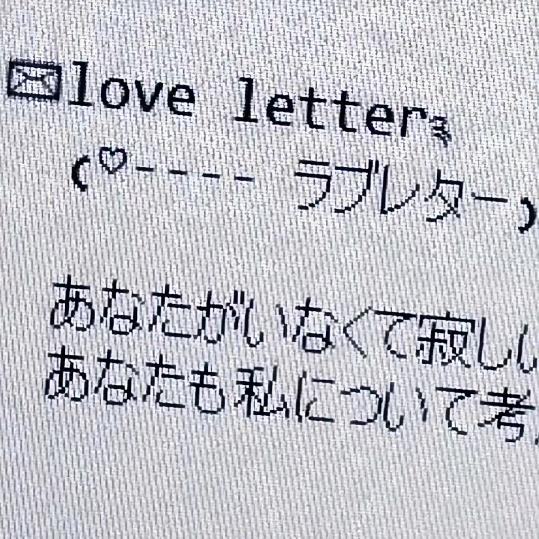 ✉love letter༊
(♡---- ラブレター)
あなたがいなくて寂しい
あなたも私について考